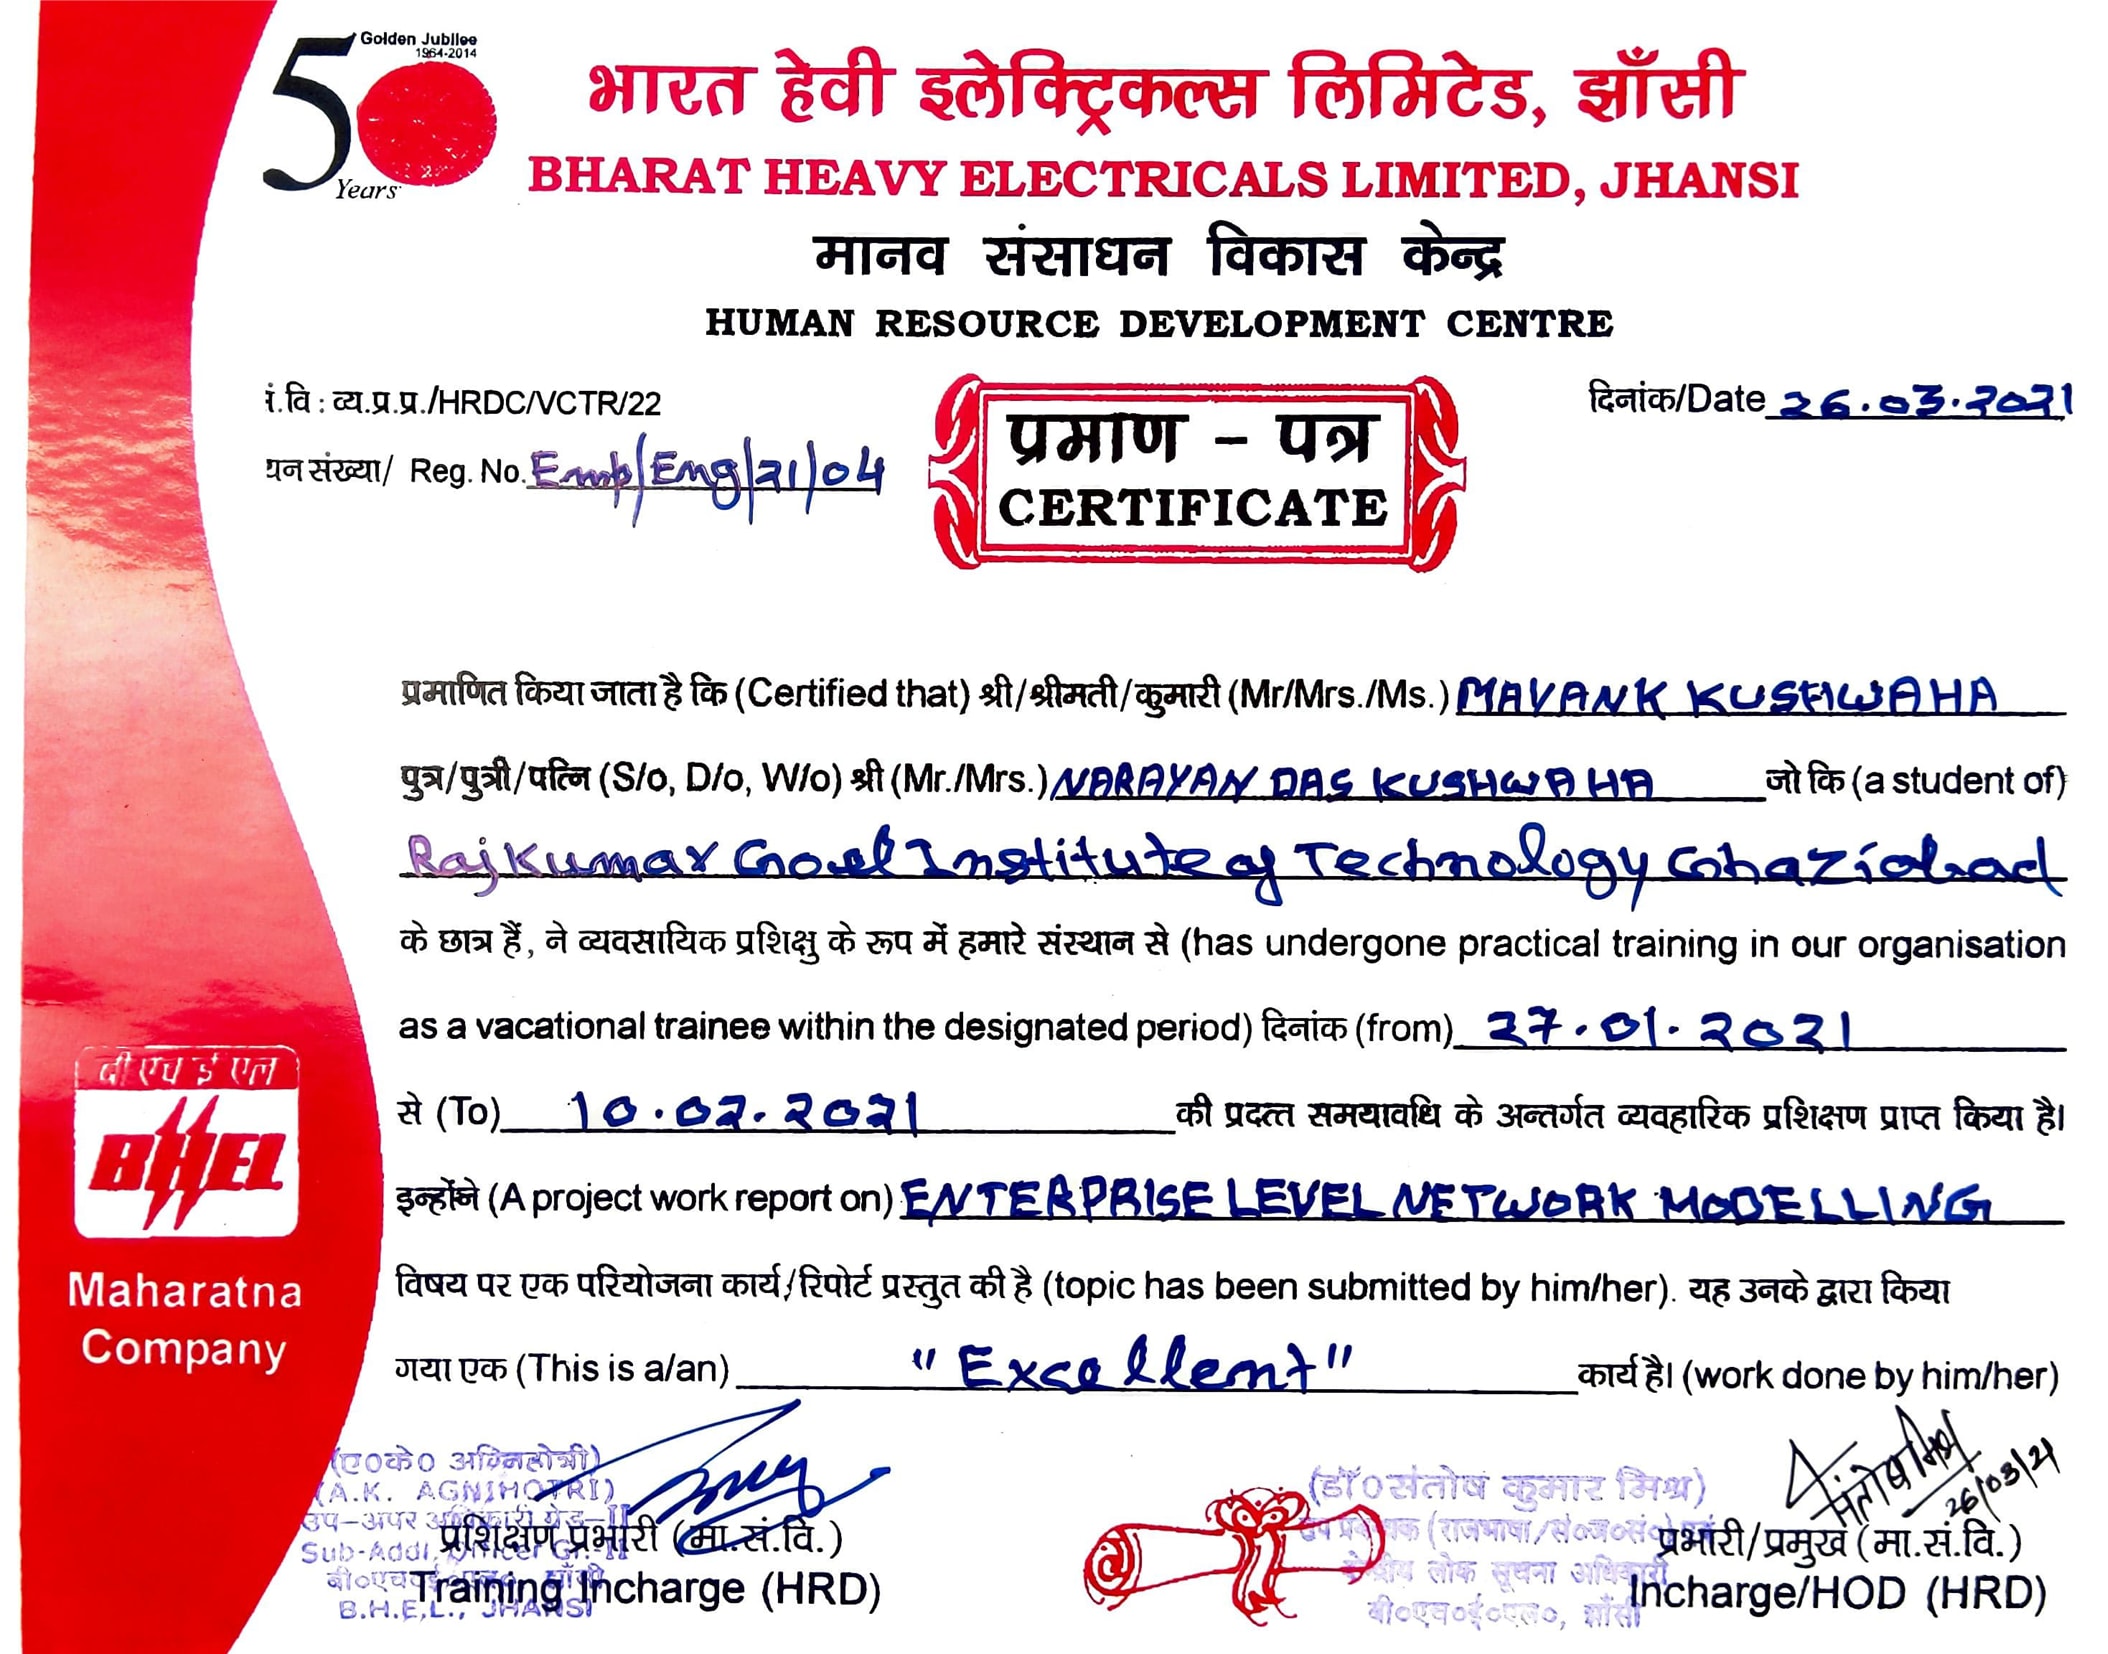 50 Golden Jubilee
1964-2014
Years
भारत हेवी इलेक्ट्रिकल्स लिमिटेड, झाँसी
BHARAT HEAVY ELECTRICALS LIMITED, JHANSI
मानव संसाधन विकास केन्द्र
HUMAN RESOURCE DEVELOPMENT CENTRE
सं.वि : व्य.प्र.प्र./HRDC/VCTR/22
दिनांक/Date 26.03.2021
प्रमाण - पत्र
CERTIFICATE
यन संख्या/ Reg. No. Emp/Eng/21/04
प्रमाणित किया जाता है कि (Certified that) श्री/श्रीमती/कुमारी (Mr/Mrs./Ms.) MAYANK KUSHWAHA
पुत्र/पुत्री/पत्नि (S/o, D/o, W/o) श्री (Mr./Mrs.) NARAYAN DAS KUSHWAHA जो कि (a student of)
Rajkumar Goel Institute of Technology Ghaziabad
के छात्र हैं, ने व्यवसायिक प्रशिक्षु के रूप में हमारे संस्थान से (has undergone practical training in our organisation
as a vacational trainee within the designated period) दिनांक (from) 27.01.2021
से (To) 10.02.2021 की प्रदत्त समयावधि के अन्तर्गत व्यवहारिक प्रशिक्षण प्राप्त किया है।
इन्होंने (A project work report on) ENTERPRISE LEVEL NETWORK MODELLING
विषय पर एक परियोजना कार्य/रिपोर्ट प्रस्तुत की है (topic has been submitted by him/her). यह उनके द्वारा किया
गया एक (This is a/an) "Excellent" कार्य है। (work done by him/her)
बी एच ई एल
BHEL
Maharatna
Company
(ए०के० अग्निहोत्री)
(A.K. AGNIHOTRI)
उप-अपर अधिकारी ग्रेड-II
Sub-Addl. Officer Gr.-II
बी०एच०ई०एल०, झाँसी
B.H.E.L., JHANSI
प्रशिक्षण प्रभारी (मा.सं.वि.)
Training Incharge (HRD)
संतोष मिश्र
26/03/21
(डॉ०संतोष कुमार मिश्र)
उप प्रबन्धक (राजभाषा/से०ज०सं०)
केन्द्रीय लोक सूचना अधिकारी
बी०एच०ई०एल०, झाँसी
प्रभारी/प्रमुख (मा.सं.वि.)
Incharge/HOD (HRD)